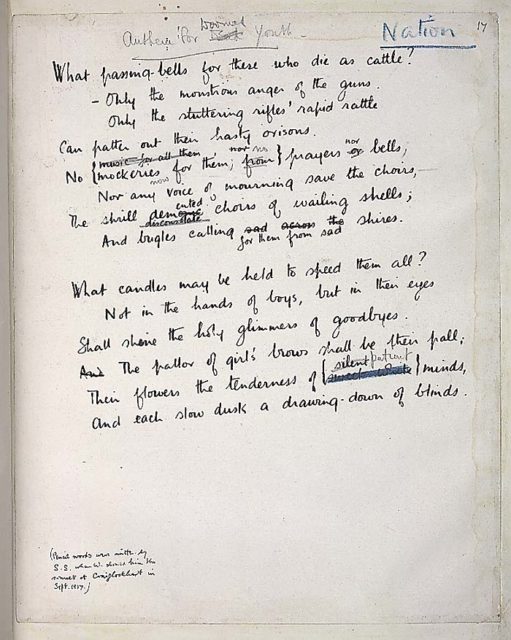 Anthem for Doomed Dead Youth
Nation
17
What passing-bells for these who die as cattle?
– Only the monstrous anger of the guns.
Only the stuttering rifles' rapid rattle
Can patter out their hasty orisons.
No { music for all them, nor no
mockeries for them; from } prayers nor or bells,
now
Nor any voice of mourning save the choirs,–
The shrill demented choirs of wailing shells;
disconsolate
And bugles calling sad across the shires.
for them from sad
What candles may be held to speed them all?
Not in the hands of boys, but in their eyes
Shall shine the holy glimmers of goodbyes.
And The pallor of girls' brows shall be their pall;
Their flowers the tenderness of { silent patient
sweet white } minds,
And each slow dusk a drawing-down of blinds.
(Pencil words were written by
S.S. when W. showed him the
sonnet at Craiglockhart in
Sept. 1917.)